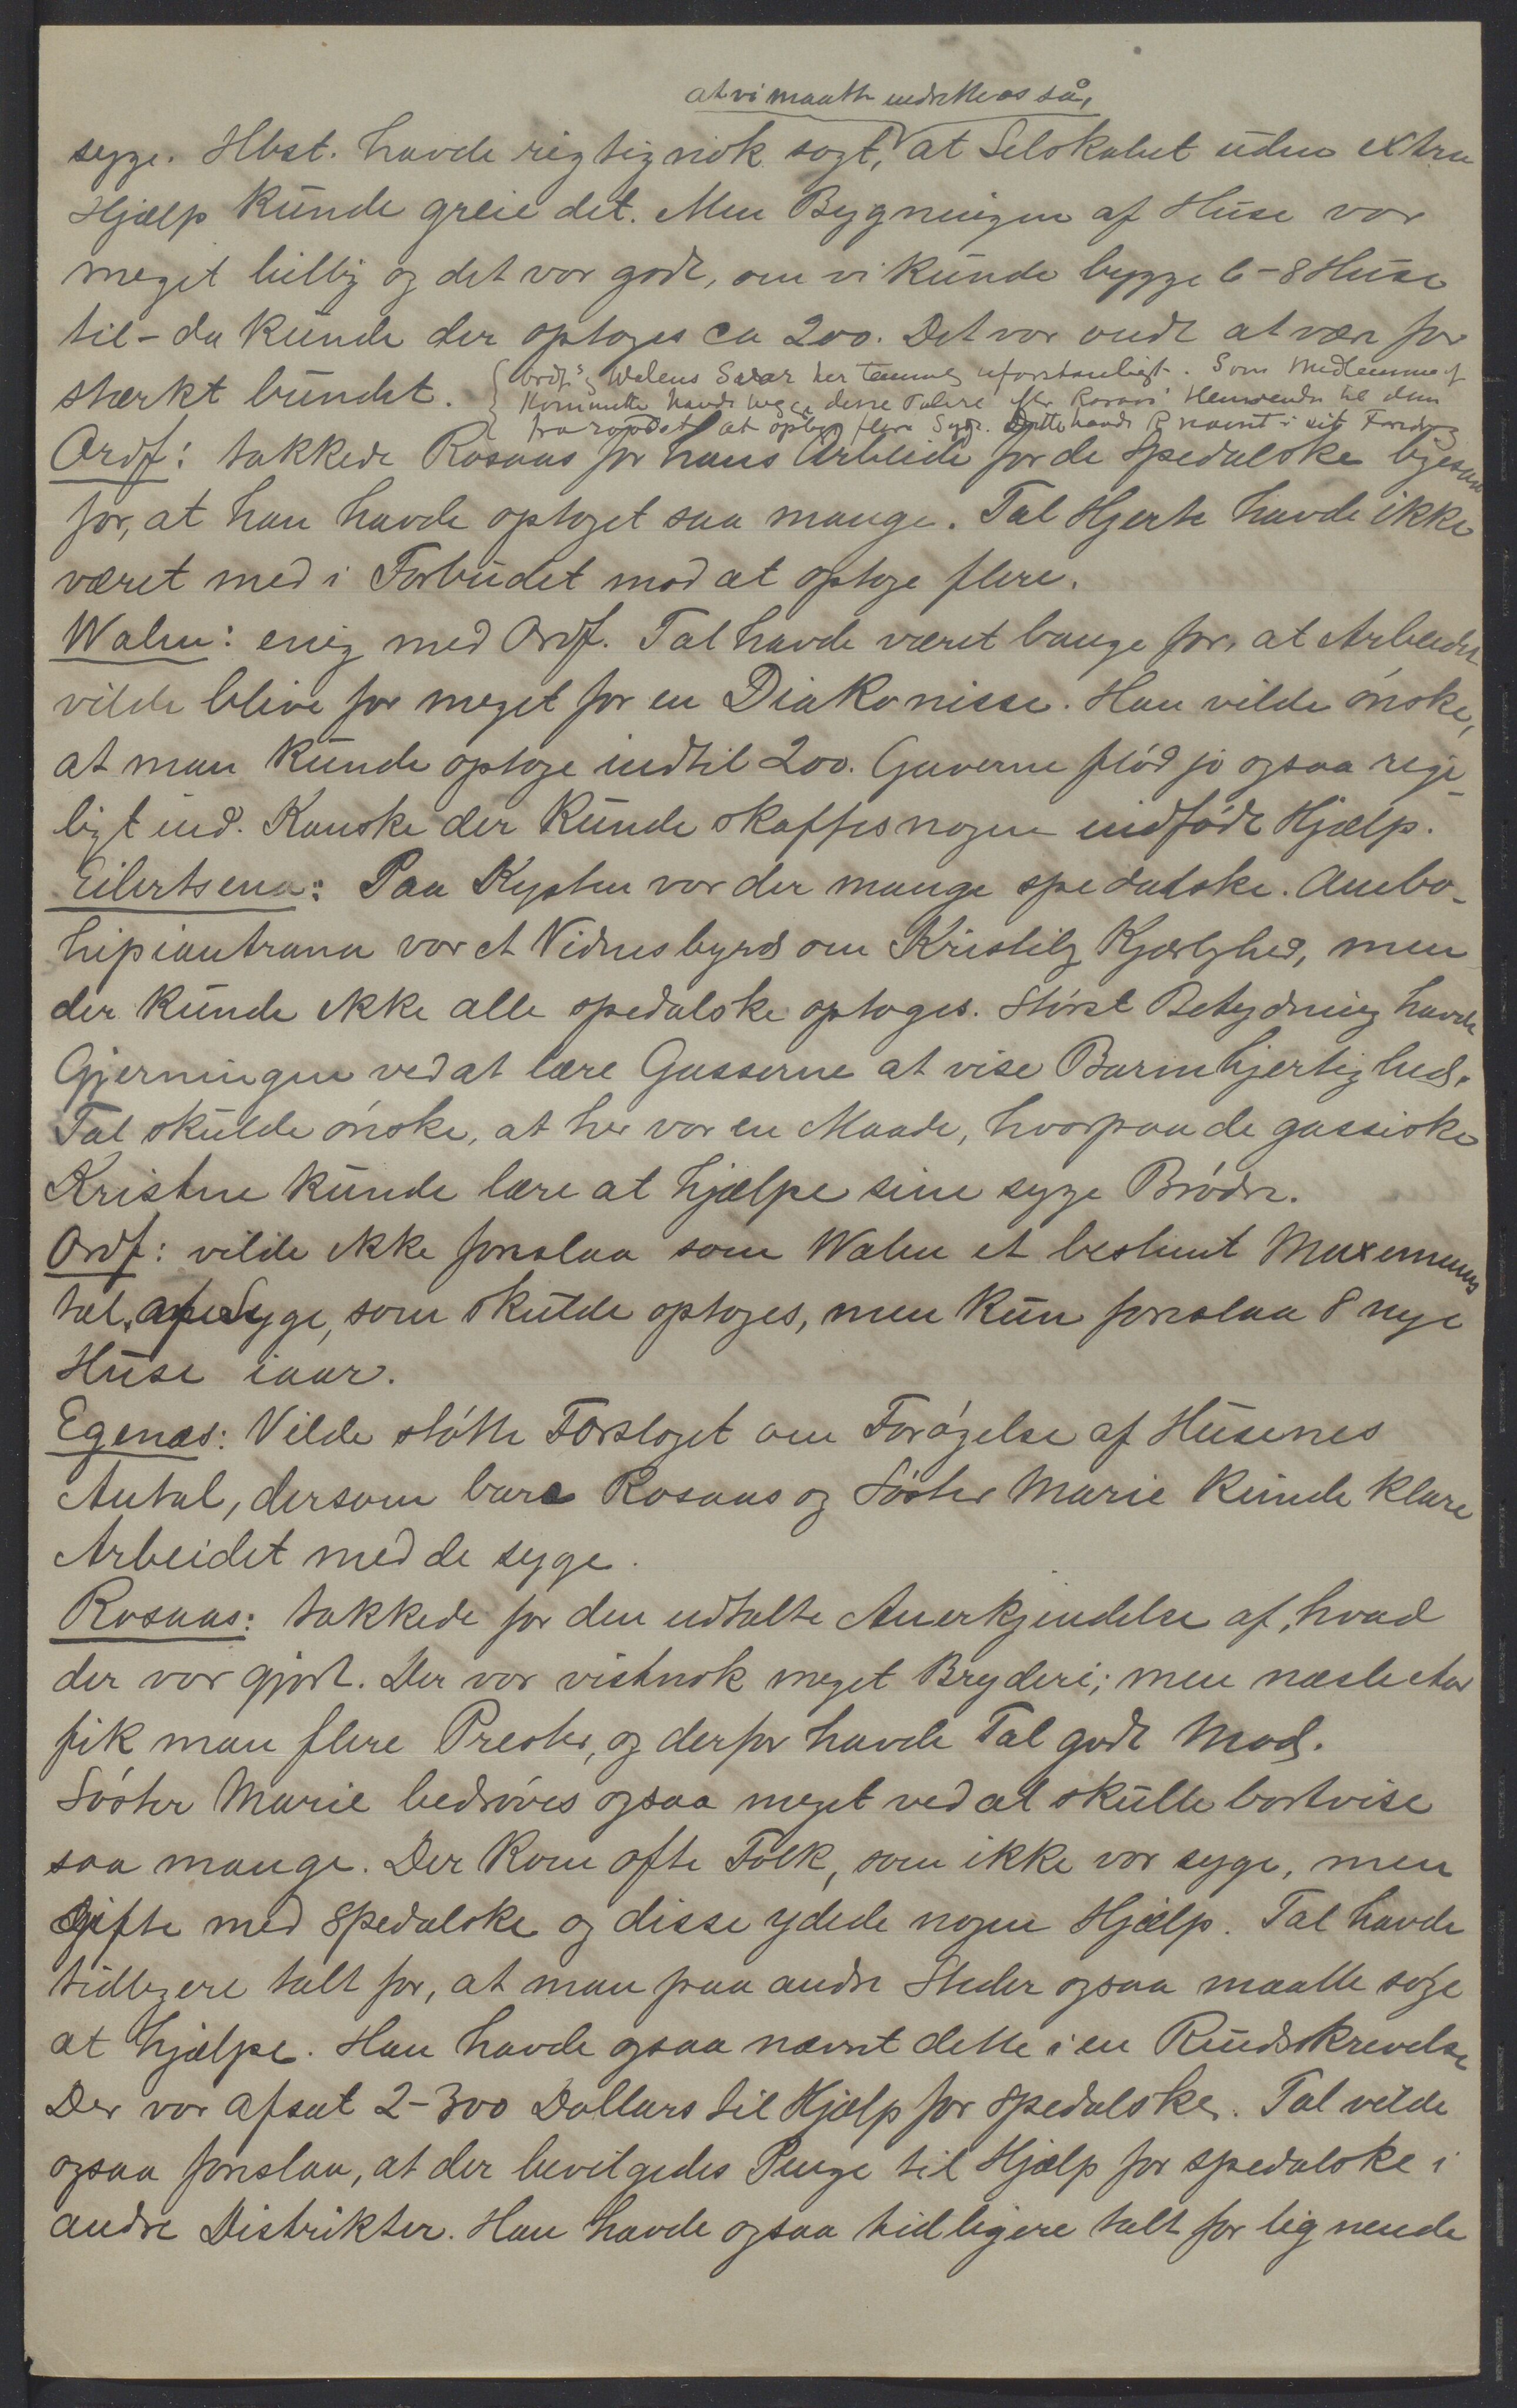 at vi maatte indrette os så,
syge. Hbst. havde rigtignok sagt, at Selskabet uden extra
Hjælp kunde greie det. Men Bygningen af Huse var
meget billig og det var godt, om vi kunde bygge 6-8 Huse
til - da kunde der optages ca 200. Det var ondt at være for
stærkt bundet.
Ordf's & Walens Svar her temmelig uforstaaeligt. Som Medlemmer af
Komiteen havde begge disse Talere efter Rosaas' Henvendn til dem
fraraadet at optage flere Syge. Dette havde R nævnt i sit Foredrag
Ordf: takkede Rosaas for hans Arbeide for de spedalske ligesaa
for, at han havde optaget saa mange. Tal Hjerte havde ikke
været med i Forbudet mod at optage flere.
Walen: enig med Ordf. Tal havde været bange for, at Arbeidet
vilde blive for meget for en Diakonisse. Han vilde ønske,
at man kunde optage indtil 200. Gaverne flød jo ogsaa rige-
ligt ind. Kanske der kunde skaffes nogen indfødt Hjælp.
Eilertsen: Paa Kysten var der mange spedalske. Ambo-
hipiantrana var et Vidnesbyrd om Kristelig Kjærlighed, men
der kunde ikke alle spedalske optages. Størst Betydning havde
Gjerningen ved at lære Gasserne at vise Barmhjertighed.
Tal skulde ønske, at her var en Maade, hvorpaa de gassiske
Kristne kunde lære at hjælpe sine syge Brødre.
Ordf: vilde ikke foreslaa som Walen et bestemt Maximums
tal af Syge, som skulde optages, men kun foreslaa 8 nye
Huse iaar.
Egenæs: Vilde støtte Forslaget om Forøgelse af Husenes
Antal, dersom bare Rosaas og Søster Marie kunde klare
Arbeidet med de syge.
Rosaas: takkede for den udtalte Anerkjendelse af, hvad
der var gjort. Der var vistnok meget Bryderi; men næste Aar
fik man flere Prester, og derfor havde Tal godt Mod.
Søster Marie bedrøves ogsaa meget ved at skulle bortvise
saa mange. Der kom ofte Folk, som ikke var syge, men
gifte med spedalske og disse ydede nogen Hjælp. Tal havde
tidligere talt for, at man paa andre Steder ogsaa maatte søge
at hjælpe. Han havde ogsaa nævnt dette i en Rundskrivelse
Der var afsat 2-300 Dollars til Hjælp for spedalske. Tal vilde
ogsaa foreslaa, at der bevilgedes Penge til Hjælp for spedalske i
andre Distrikter. Han havde ogsaa tidligere talt for lignende